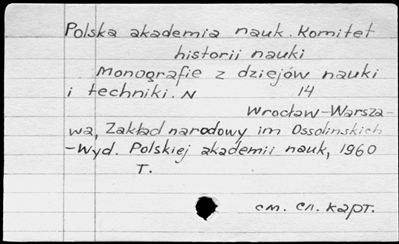 Polska akademia nauk. Komitet
historii nauki
Monografie z dziejów nauki
i techniki. N 14
Wrocław-Warsza-
wa, Zakład narodowy im Ossolinskich
-Wyd. Polskiej akademii nauk, 1960
T.
см. сл. карт.